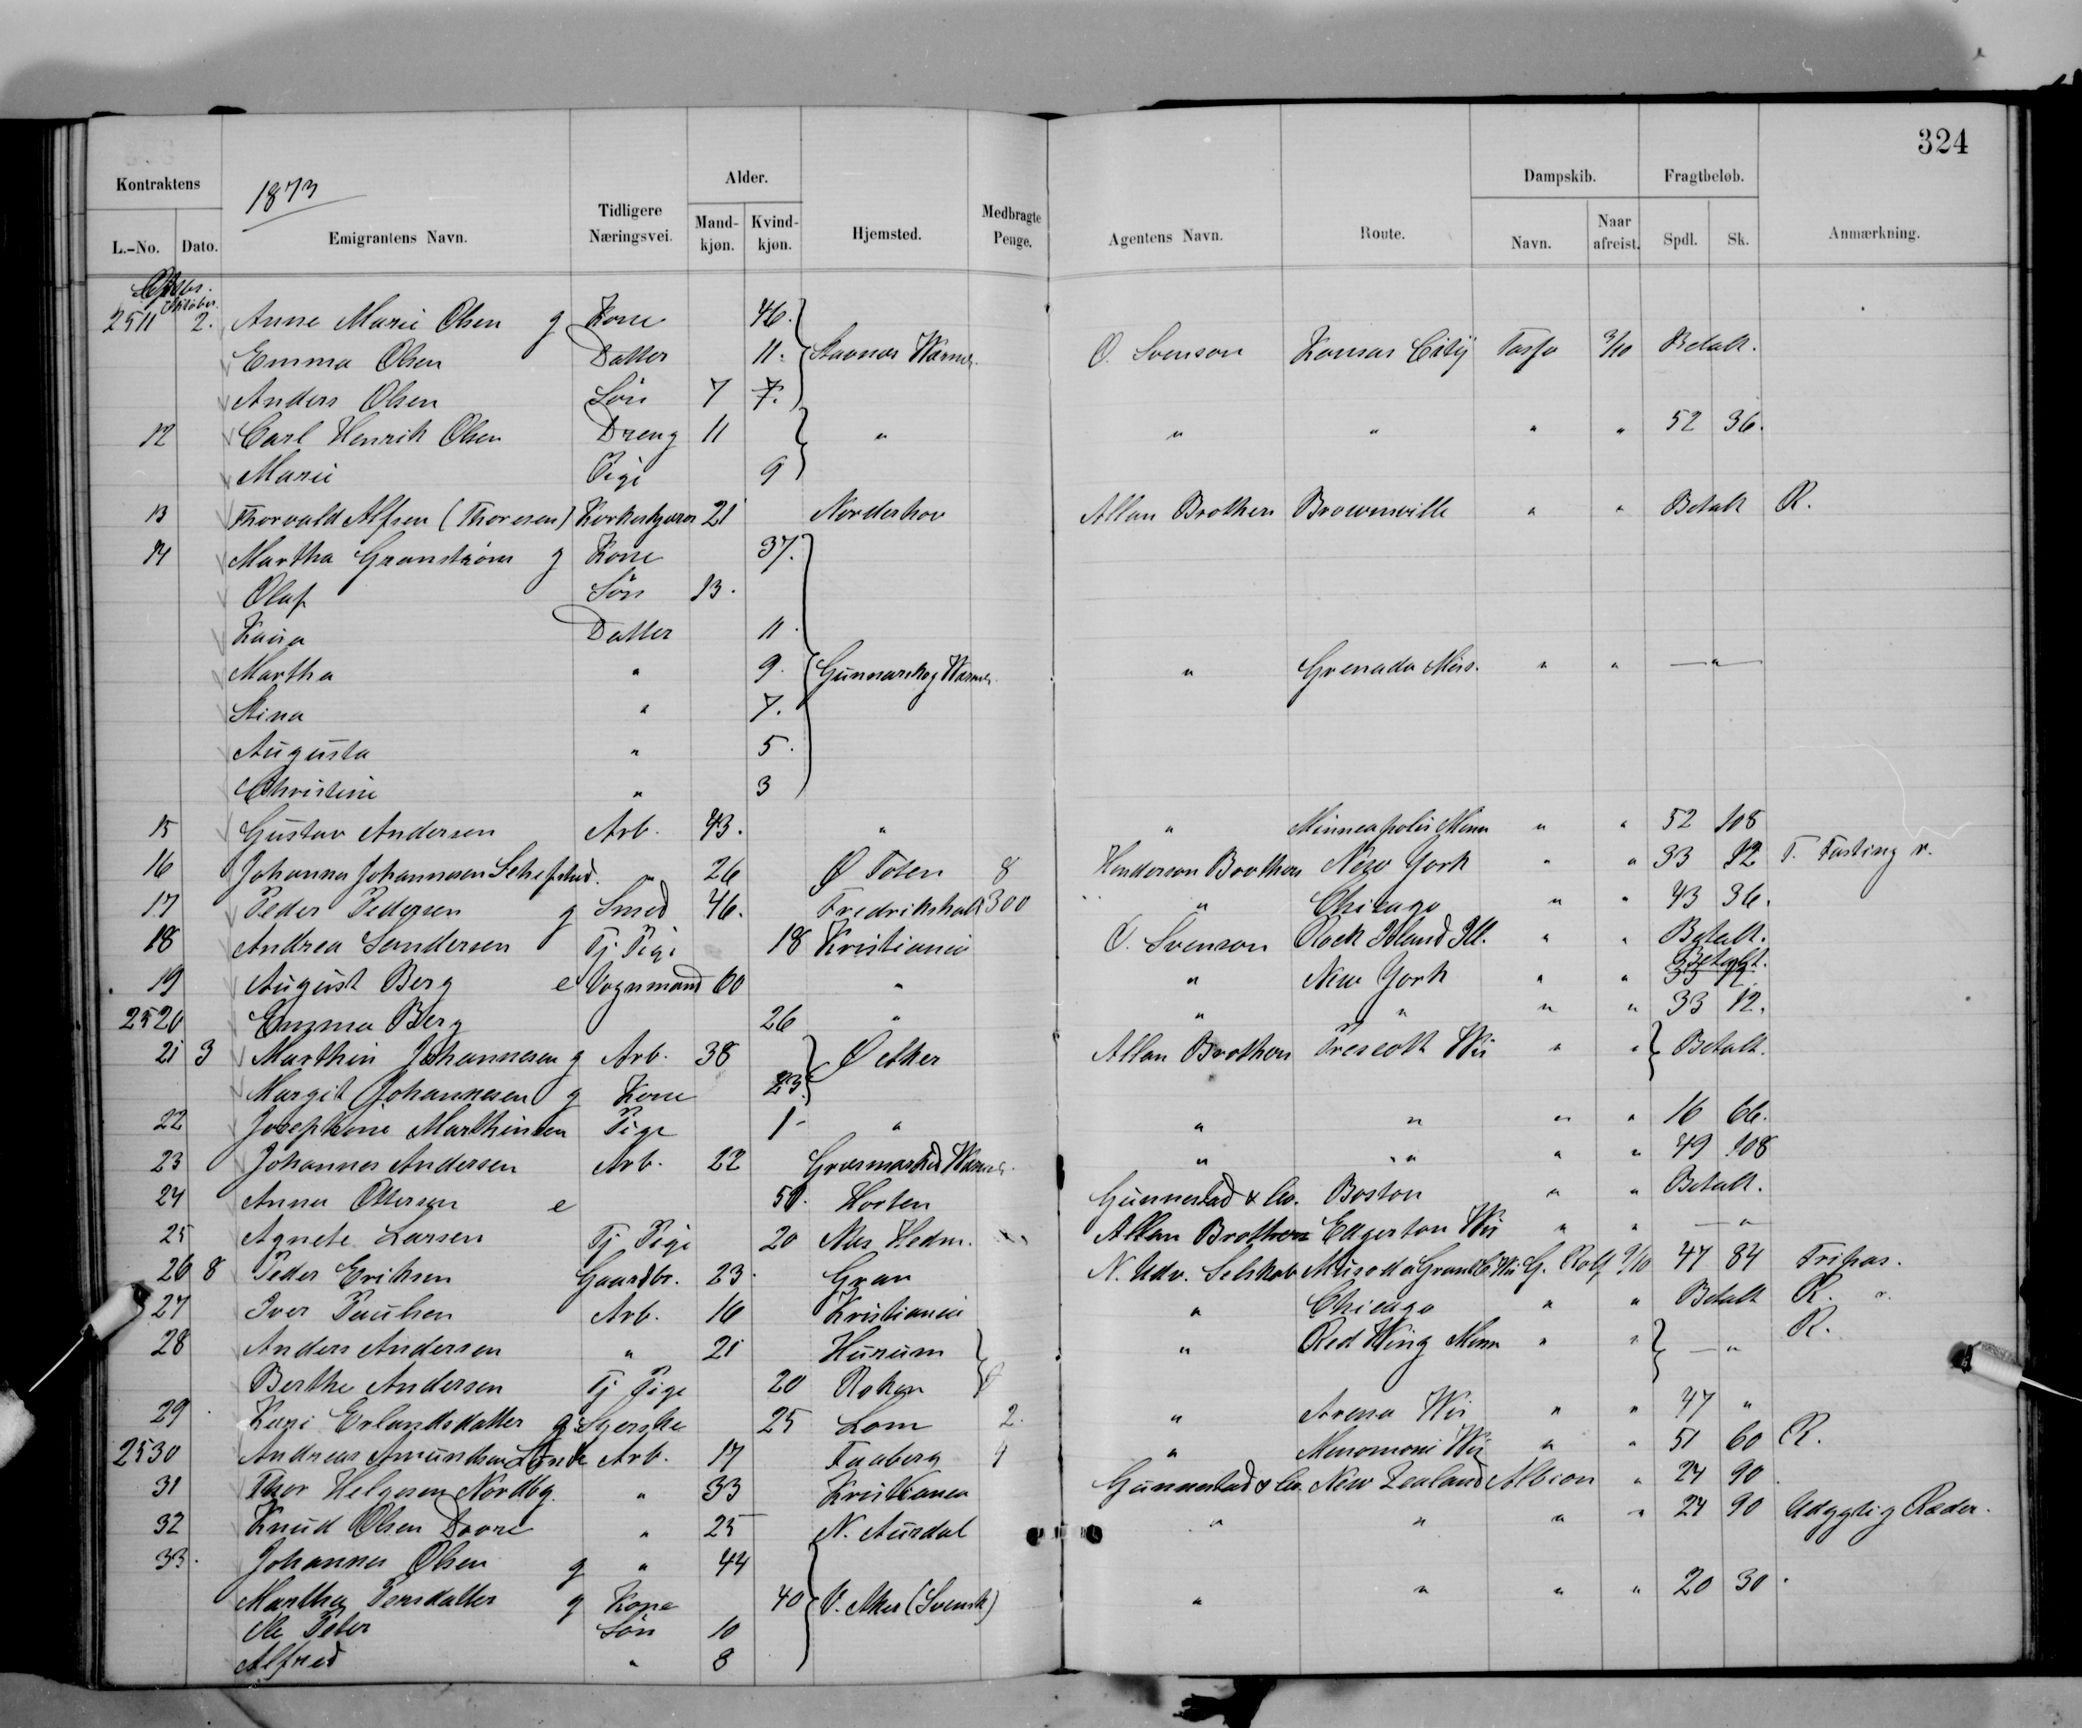 324
Kontraktens 1873 Tidligere Næringsvei. Alder. Hjemsted. Medbragte Penge. Agentens Navn. Route. Dampskib. Fragtbeløb. Anmærkning.
L.-No. Dato. Emigrantens Navn. Mand-kjøn. Kvind-kjøn. Navn. Naar afreist. Spdl. Sk.
Oktober.
2511 2. Anne Marie Olsen g Kone 46.
Emma Olsen Datter 11. Stavnæs Warml. O. Svenson Kansas City Tasso 3/10 Betalt.
Anders Olsen Søn 7 7.
12 Carl Henrik Olsen Dreng 11 " " " " " 52 36.
Marie Pige 9
13 Thorvald Alfsen (Thoresen) 21 Norderhov Allan Brothers Brownsville " " Betalt R.
14 Martha Granstrøm g Kone 37.
Olaf Søn 13.
Kaisa Datter 11.
Martha " 9. Gunnarskog Warml. " Grenada Miss. " " — " —
Stina " 7.
Augusta " 5.
Christine " 3
15 Gustav Andersen Arb. 43. " " Minneapolis Minn " " 52 108
16 Johannes Johannesen " 26 Ø Toten 8 Henderson Brothers New York " " 33 12 T. Fasting r.
17 Peder Pedersen g Smed 46. Fredrikshald 300 " Chicago " " 43 36.
18 Andrea Sandersen Tj. Pige 18 Kristiania O. Svenson Rock Island Ill. " " Betalt.
19 August Berg e Vognmand 60 " " New York " " 33 12. Betalt.
2520 Emma Berg 26 " " " " " 33 12.
21 3 Marthin Johannesen g Arb. 38 Ø Aker Allan Brothers Prescott Wis " " Betalt.
Margit Johannesen g Kone 23.
22 Josephine Marthinsen Pige 1- " " " " " 16 66.
23 Johannes Andersen Arb. 22 Græsmarked Warml. " " " " 49 108
24 Anna Ottersen e 50. Horten Gunnestad & Co. Boston " " Betalt.
25 Agnete Larsen Tj Pige 20 Næs Hedm. Allan Brothers Edgerton Wis " " — " —
26 8 Peder Eriksen Gaardbr. 23. Gran N. Udv. Selskab Musoda Grant C Wis G. Rolf 9/10 47 84 Fripas.
27 Iver Paulsen Arb. 16 Kristiania " Chicago " " Betalt R. r.
28 Anders Andersen " 21 Hurum " Red Wing Minn " " — " R.
Berthe Andersen Tj Pige 20 Røken
29 Kari Erlandsdatter g Syerske 25 Lom 2. " Arena Wis " " 47 "
2530 Andreas Amundsen Lunde Arb. 17 Faaberg 4 " Menomoni Wis " " 51 60 R.
31 Thor Helgesen Nordbg. " 33 Kristiania Gunnestad & Co. New Zealand Albion " 24 90.
32 Knud Olsen " 25 N. Aurdal " " " " 24 90 Udygtig Ræder.
33. Johannes Olsen g " 44
Martha Persdatter g Kone 40 V. Aker (Svensk) " " " " 20 30.
Ole Peter Søn 10
Alfred " 8